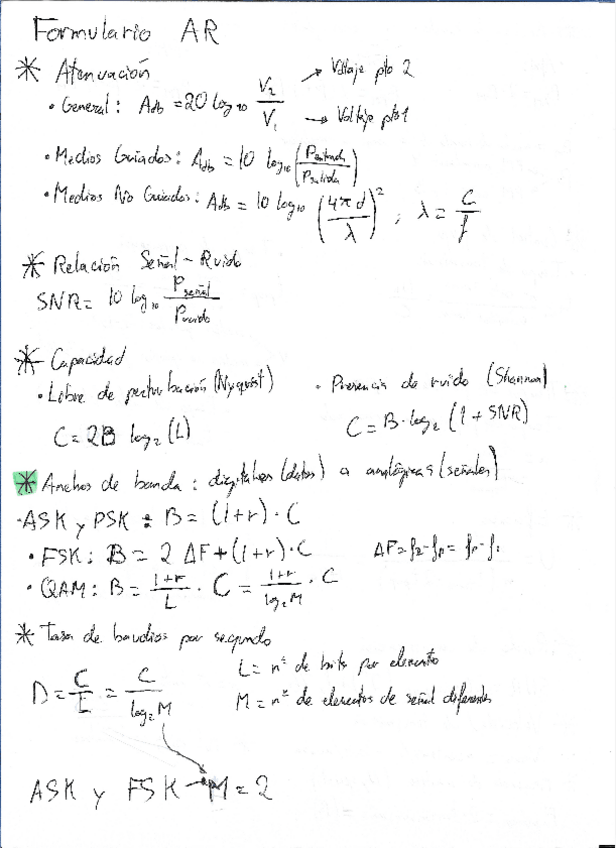 Formulario AR
* Atenuación
• General: Adb = 20 log10 V2/V1 → Voltaje pto 2 → Voltaje pto 1
• Medios Guiados: Adb = 10 log10 (Pentrada/Psalida)
• Medios No Guiados: Adb = 10 log10 (4πd/λ)²; λ = C/f
* Relación Señal-Ruido
SNR = 10 log10 Pseñal/Pruido
* Capacidad
• Libre de perturbación (Nyquist)
C = 2B log2 (L)
• Presencia de ruido (Shannon)
C = B · log2 (1 + SNR)
* Anchos de banda: digitales (datos) a analógicas (señales)
• ASK y PSK: B = (1+r) · C
• FSK: B = 2 ΔF + (1+r) · C ΔF = f2 - fp = fp - f1
• QAM: B = 1+r/L · C = 1+r/log2 M · C
* Tasa de baudios por segundo
D = C/L = C/log2 M
L = nº de bits por elemento
M = nº de elementos de señal diferentes
ASK y FSK → M = 2